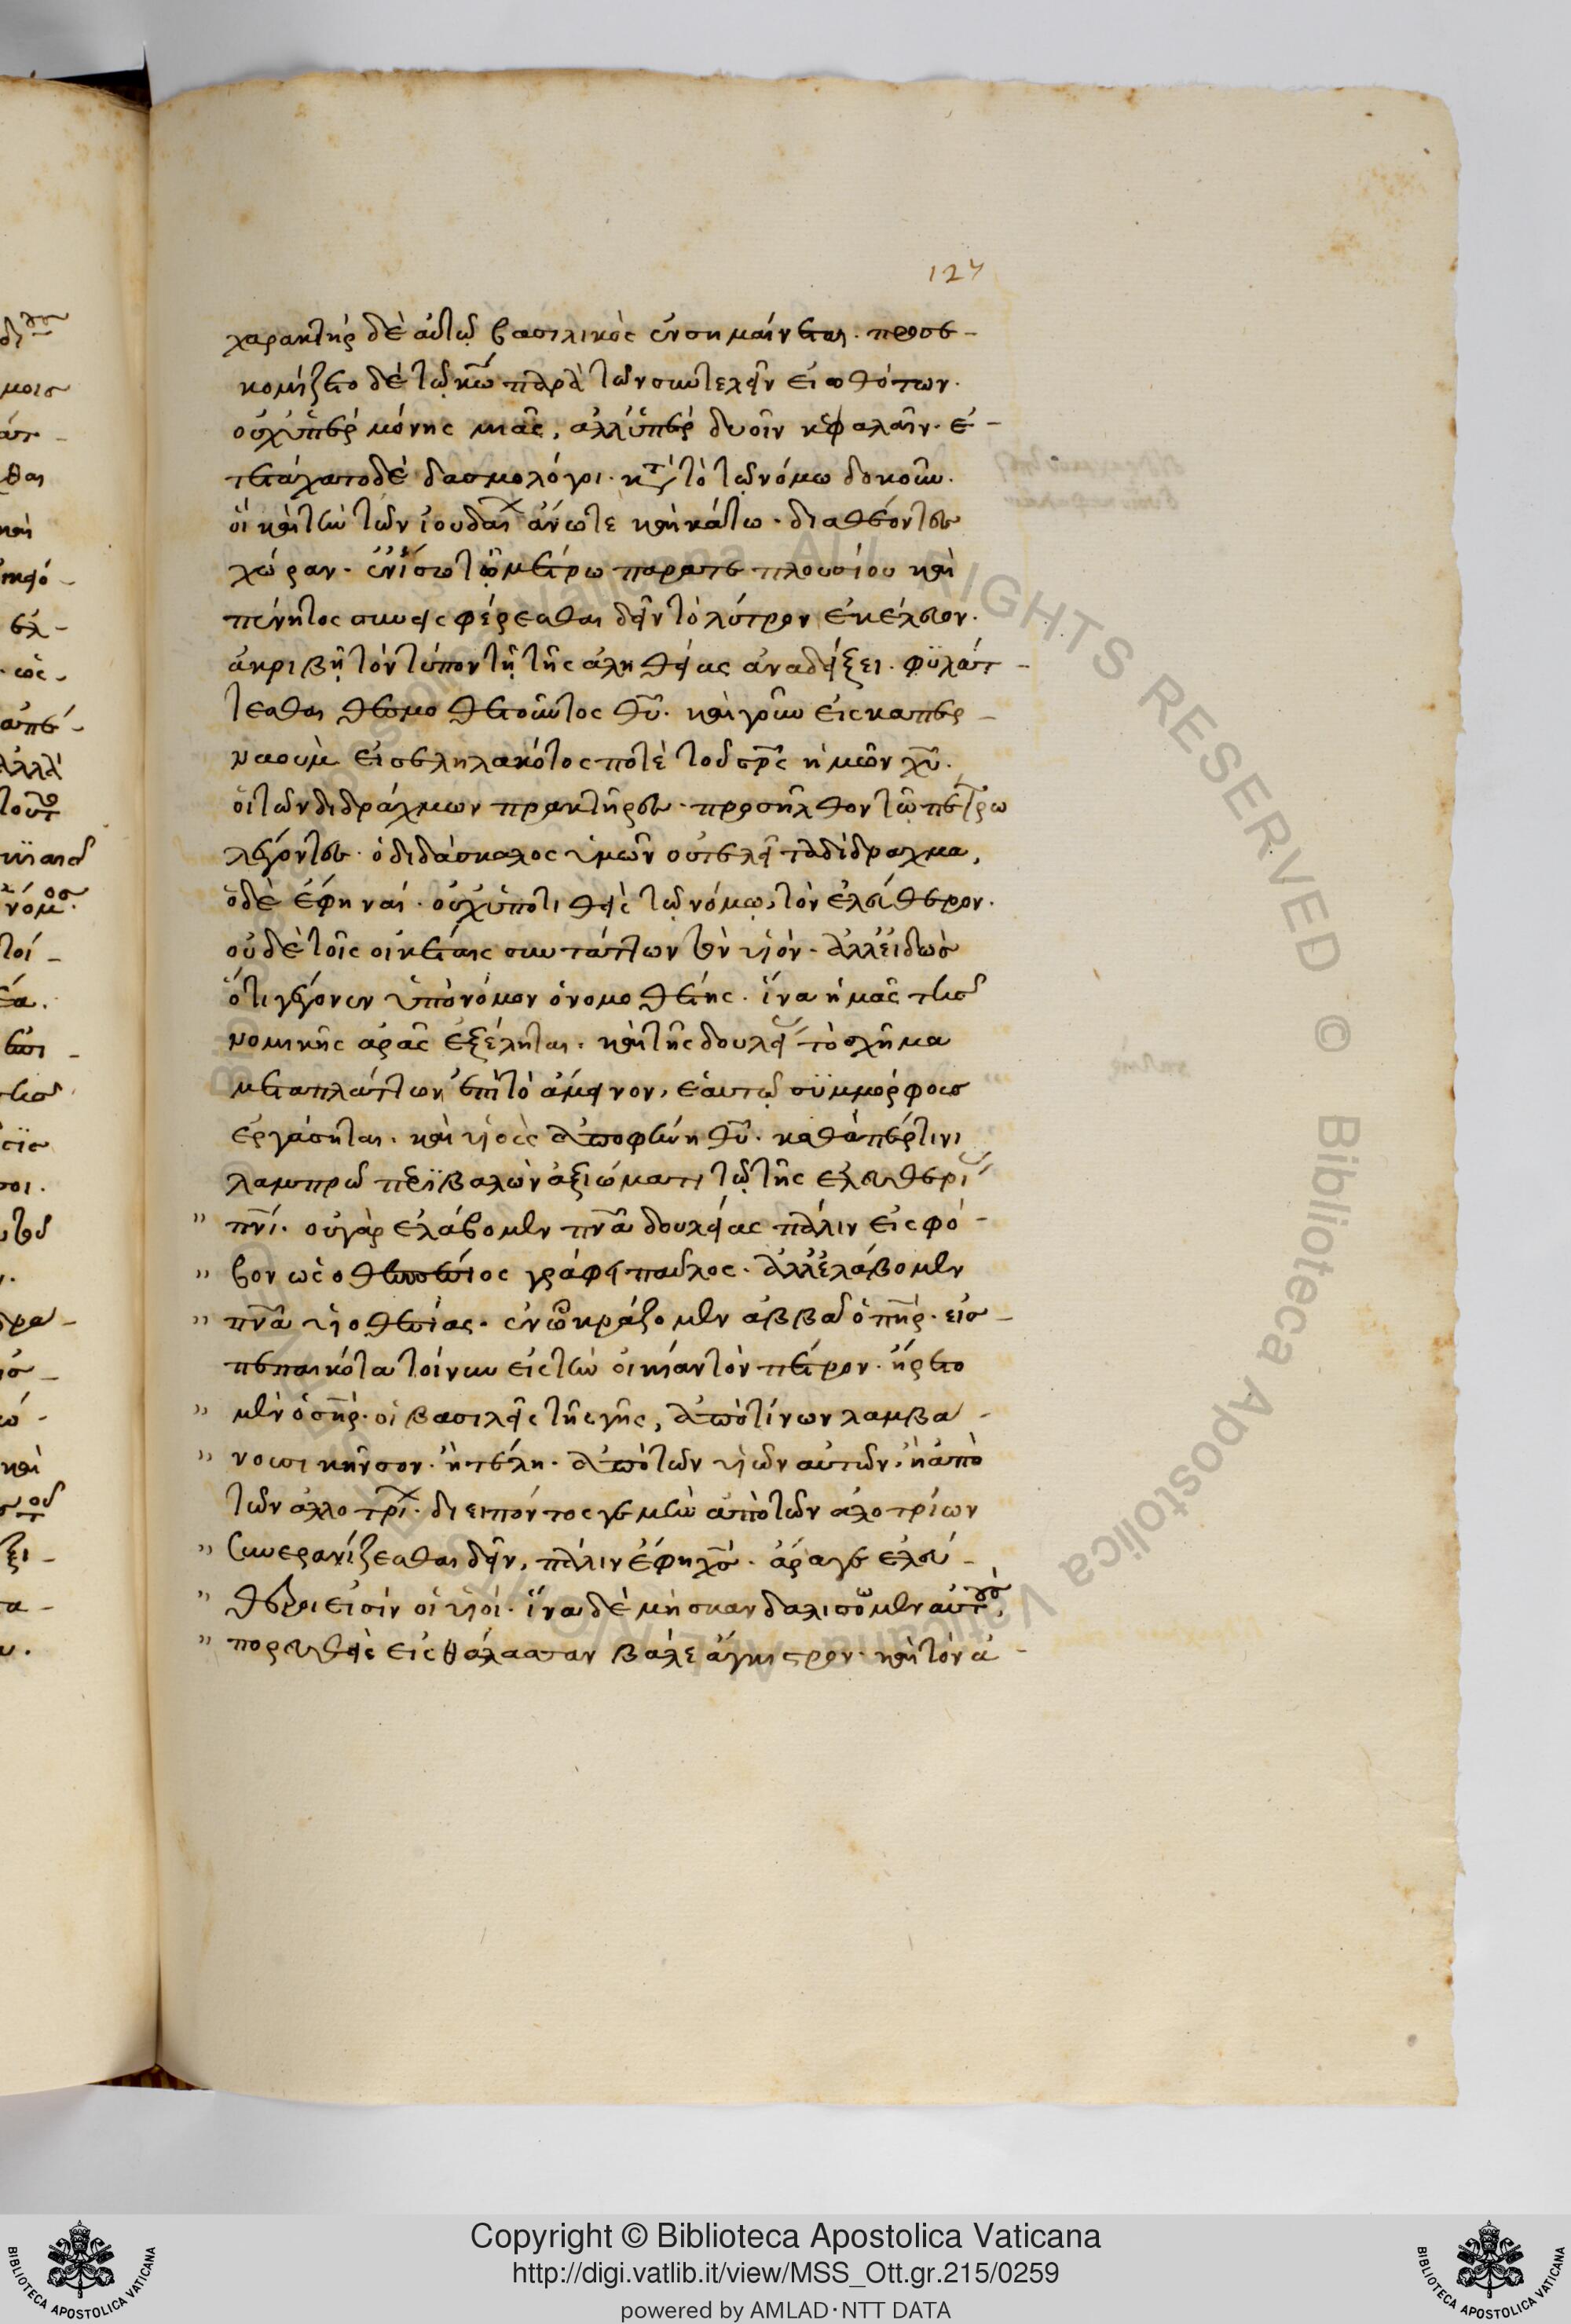 127
χαρακτὴρ δὲ αὐτῷ βασιλικὸς ἐνσημαίνεται. προσε-
κομίζετο δὲ τῷ κῶ παρὰ τῶν συντελεῖν εἰωθότων.
οὐχ ὑπὲρ μόνης μιᾶς, ἀλλ' ὑπὲρ δυοῖν κεφαλαῖν. ἐ-
τετάχατο δὲ δασμολόγοι. κατὰ τὸ τῷ νόμω δοκοῦν.
οἱ καὶ τὴν τῶν ἰουδαί ἄνω τε καὶ κάτω. διαθέοντες
χώραν. ἐν ἴσω τῶ μέτρω παρά τε πλουσίου καὶ
πένητος συνεισφέρεσθαι δεῖν τὸ λύτρον ἐκέλευον.
ἀκριβῆ τὸν τύπον τῆ τῆς ἀληθείας ἀναδείξει. φυλάτ-
τεσθαι θεσμοθετοῦντος θῦ. καὶ γοῦν εἰς καπερ-
ναοὺμ εἰσεληλακότος ποτὲ τοῦ σρς ἡμῶν χῦ.
οἱ τῶν διδράχμων πρακτῆρες. προσῆλθον τῶ πέτρω
λέγοντες. ὁ διδάσκαλος ὑμῶν οὐ τελεῖ τὰ δίδραχμα,
ὁ δὲ ἔφη ναί. οὐχ ὑποτιθεὶς τῷ νόμῳ, τὸν ἐλεύθερον.
οὐδὲ τοῖς οἰκέταις συντάττων τὸν υἱόν. ἀλλ' εἰδὼς
ὅτι γέγονεν ὑπὸ νόμον ὁ νομοθέτης. ἵνα ἡμᾶς τῆς
νομικῆς ἀρᾶς ἐξέληται. καὶ τῆς δουλείας τὸ σχῆμα
μεταπλάττων ἐπὶ τὸ ἄμεινον, ἑαυτῷ συμμόρφους
ἐργάσηται. καὶ υἱοὺς ἀποφήνη θῦ. καθάπερ τινι
λαμπρῶ περιβαλὼν ἀξιώματι τῷ τῆς ἐλευθερί
" πνι. οὐ γὰρ ἐλάβομεν πνα δουλείας πάλιν εἰς φό-
" βον ὡς ὁ θεσπέσιος γράφει παῦλος. ἀλλ' ἐλάβομεν
" πνα υἱοθεσίας. ἐν ᾧ κράζομεν ἀββᾶ ὁ πηρ. εἰσ-
πεπαικότα τοίνυν εἰς τὴν οἰκίαν τὸν πέτρον. ἤρετο
" μὲν ὁ σηρ. οἱ βασιλεῖς τῆς γῆς, ἀπὸ τίνων λαμβά-
" νουσι κῆνσον. ἢ τέλη. ἀπὸ τῶν υἱῶν αὐτῶν, ἢ ἀπὸ
τῶν ἀλλοτρί. διειπόντος γε μὴν ἀπὸ τῶν ἀλοτρίων
" συνερανίζεσθαι δεῖν, πάλιν ἔφη χς. ἄραγε ἐλεύ-
" θεροι εἰσὶν οἱ υἱοί. ἵνα δὲ μὴ σκανδαλίσωμεν αὐτούς,
" πορευθεὶς εἰς θάλασσαν βάλε ἄγκιστρον. καὶ τὸν ἀ-
Copyright © Biblioteca Apostolica Vaticana
http://digi.vatlib.it/view/MSS_Ott.gr.215/0259
powered by AMLAD·NTT DATA